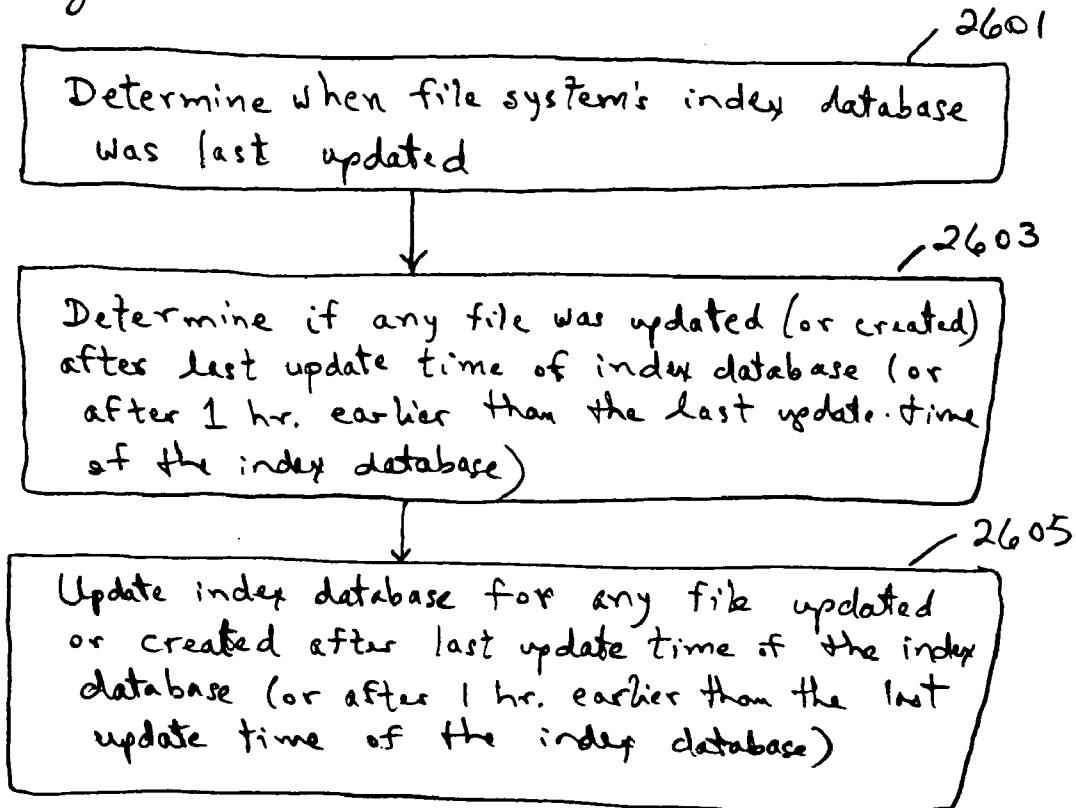 2601
Determine when file system's index database
was last updated
2603
Determine if any file was updated (or created)
after last update time of index database (or
after 1 hr. earlier than the last update time
of the index database)
2605
Update index database for any file updated
or created after last update time of the index
database (or after 1 hr. earlier than the last
update time of the index database)